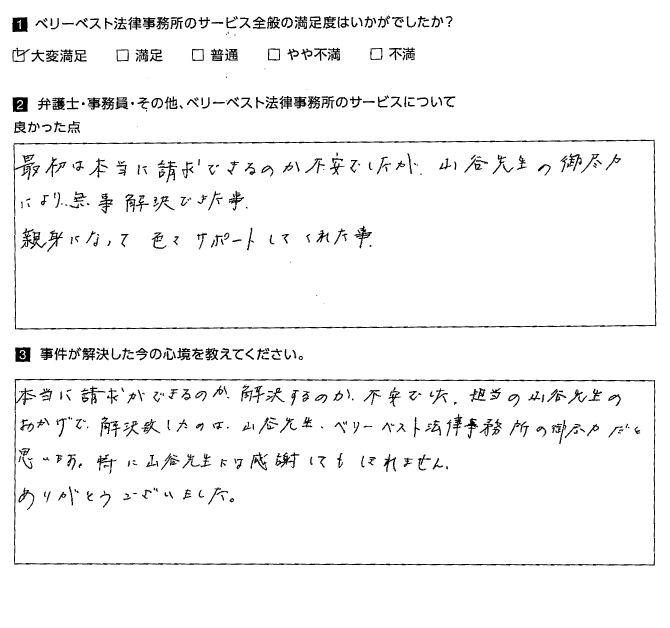 1 ベリーベスト法律事務所のサービス全般の満足度はいかがでしたか?
☑大変満足 □ 満足 □ 普通 □ やや不満 □ 不満
2 弁護士・事務員・その他、ベリーベスト法律事務所のサービスについて
良かった点
最初は本当に請求できるのか不安でしたが、山谷先生の御尽力
により、無事解決できた事。
親身になって色々サポートしてくれた事。
3 事件が解決した今の心境を教えてください。
本当に請求ができるのか、解決するのか、不安でした。担当の山谷先生の
おかげで、解決致したのは、山谷先生、ベリーベスト法律事務所の御尽力だと
思います。特に山谷先生には感謝してもしきれません。
ありがとうございました。